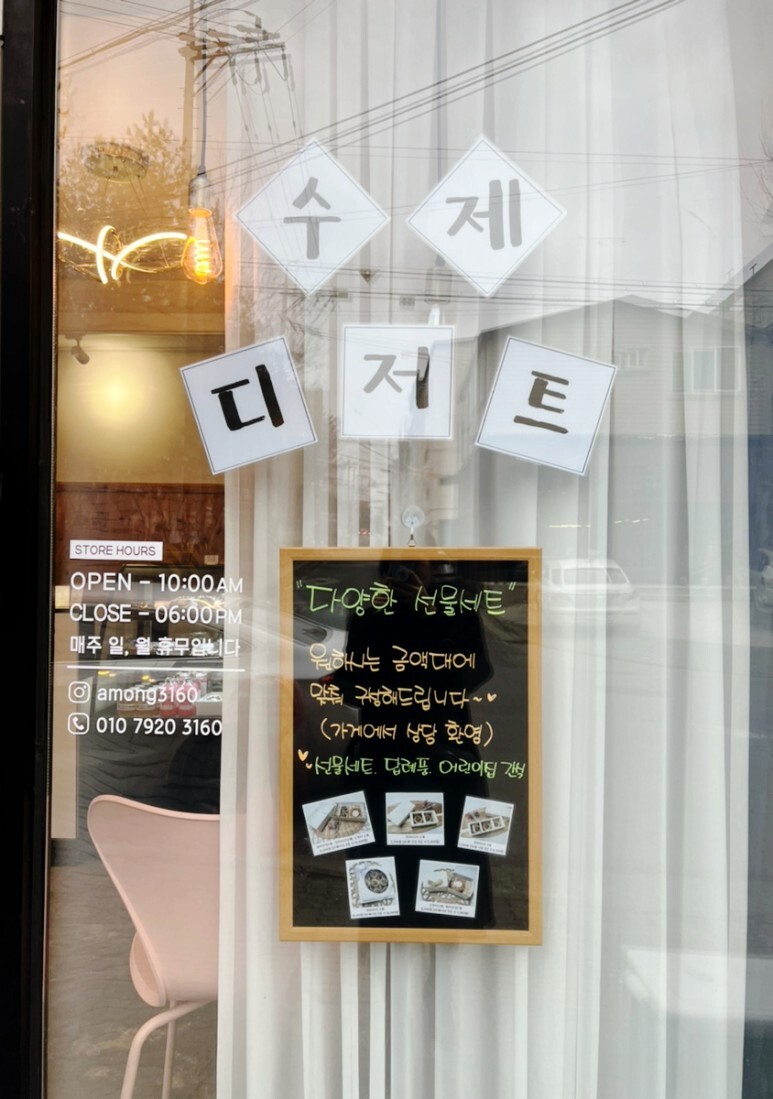 수제
디저트
STORE HOURS
OPEN - 10:00AM
CLOSE - 06:00PM
매주 일, 월 휴무입니다
among3160
010 7920 3160
"다양한 선물세트"
원하시는 금액대에
맞춰 구성해드립니다~♥
(가게에서 상담 환영)
선물세트. 답례품. 어린이집 간식